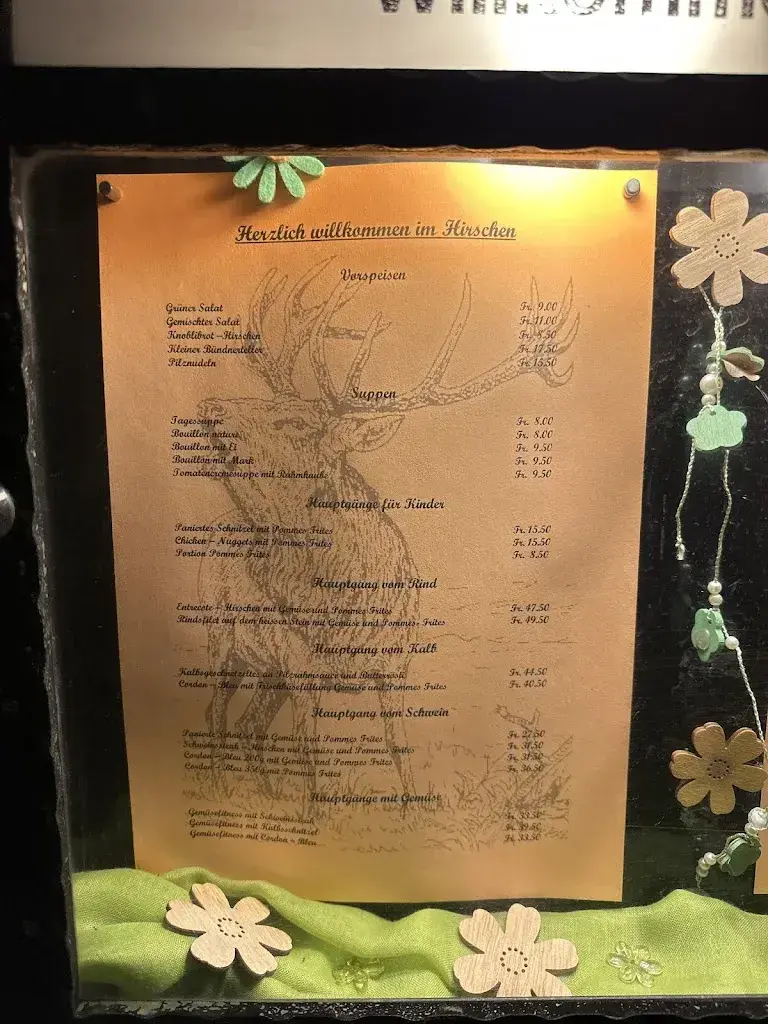 Herzlich willkommen im Hirschen
Vorspeisen
Grüner Salat Fr. 9.00
Gemischter Salat Fr. 11.00
Knoblibrot – Hirschen Fr. 8.50
Kleiner Bündnerteller Fr. 17.50
Pilznudeln Fr. 15.50
Suppen
Tagessuppe Fr. 8.00
Bouillon nature Fr. 8.00
Bouillon mit Ei Fr. 9.50
Bouillon mit Mark Fr. 9.50
Tomatencremesuppe mit Rahmhaube Fr. 9.50
Hauptgänge für Kinder
Paniertes Schnitzel mit Pommes Frites Fr. 15.50
Chicken – Nuggets mit Pommes Frites Fr. 15.50
Portion Pommes Frites Fr. 8.50
Hauptgang vom Rind
Entrecote – Hirschen mit Gemüse und Pommes Frites Fr. 47.50
Rindsfilet auf dem heissen Stein mit Gemüse und Pommes- Frites Fr. 49.50
Hauptgang vom Kalb
Kalbsgeschnetzeltes an Pilzrahmsauce und Butterrösti Fr. 44.50
Cordon – Bleu mit Frischkäsefüllung Gemüse und Pommes Frites Fr. 40.50
Hauptgang vom Schwein
Panierte Schnitzel mit Gemüse und Pommes Frites Fr. 27.50
Schweinssteak – Hirschen mit Gemüse und Pommes Frites Fr. 31.50
Cordon – Bleu 200g mit Gemüse und Pommes Frites Fr. 31.50
Cordon – Bleu 350g mit Pommes Frites Fr. 36.50
Hauptgänge mit Gemüse
Gemüsefitness mit Schweinssteak Fr. 33.50
Gemüsefitness mit Kalbsschnitzel Fr. 39.50
Gemüsefitness mit Cordon – Bleu Fr. 33.50